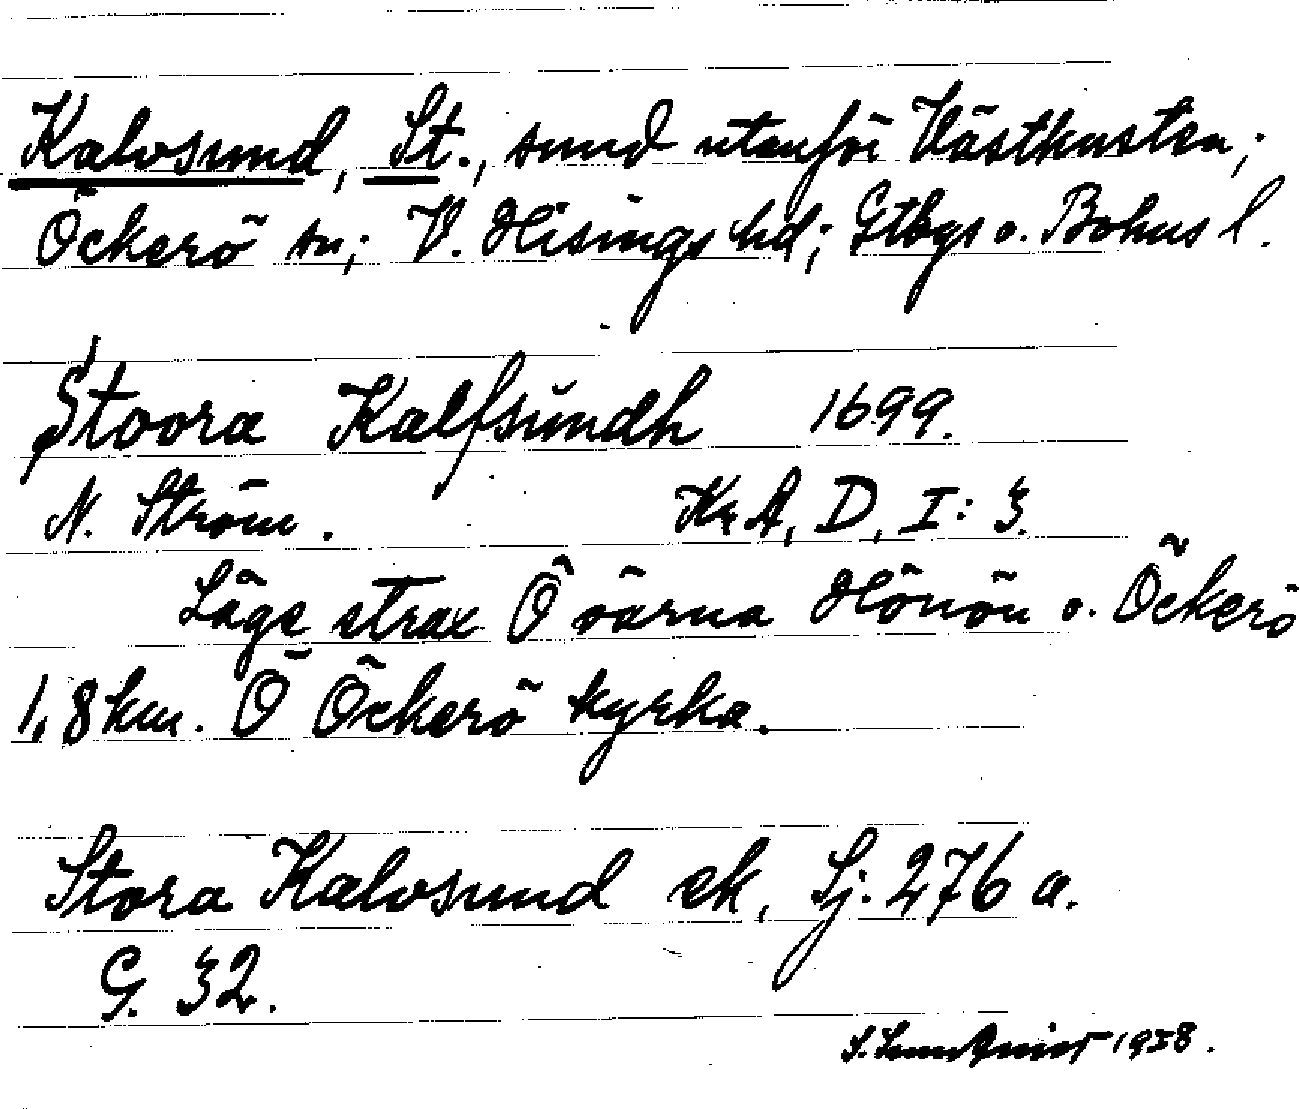 Kalvsund, St., sund utanför Västkusten;
Öckerö sn; V. Hisings hd; Gtbgs o. Bohus l.
Stoora Kalfsundh 1699.
N. Ström. KrA, D, I: 3.
Läge strax Ö öarna Hönön o. Öckerö
1,8 km. Ö Öckerö kyrka.
Stora Kalvsund ek, Sj. 276 a.
G. 32.
S. Sundqvist 1938.